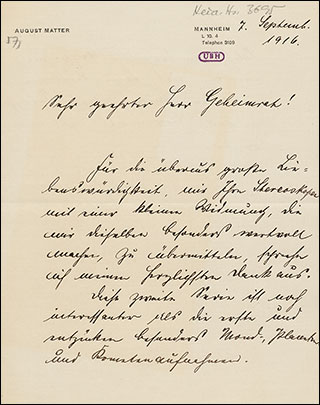 Heid. Hs. 3695
AUGUST MATTER
57,
MANNHEIM 7. Septemb.
L 10. 4
Telephon 3109
1916.
UBH
Sehr geehrter Herr Geheimrat!
Für die überaus große Lie-
benswürdigkeit, mir Ihre Stereoskope
mit einer kleinen Widmung, die
mir dieselben besonders wertvoll
machen, zu übermitteln, spreche
ich meinen herzlichsten Dank aus.
Diese zweite Serie ist noch
interessanter als die erste und
entzücken besonders Mond-, Planeten
und Kometenaufnahmen.